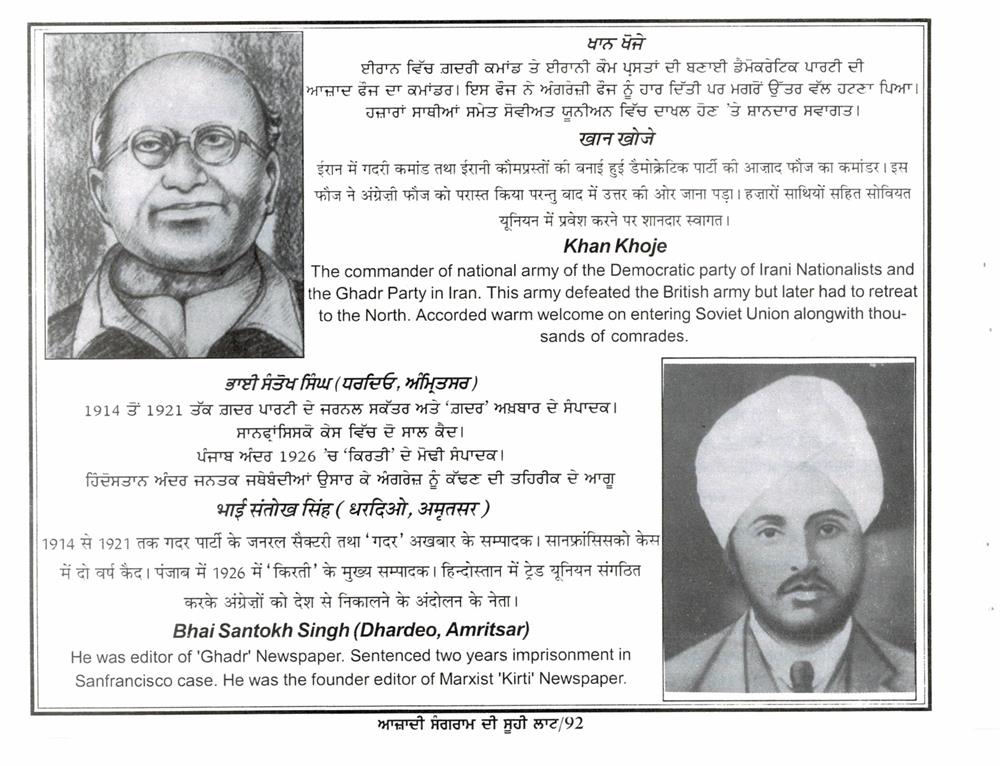 ਖਾਨ ਖੋਜੇ
ਈਰਾਨ ਵਿੱਚ ਗ਼ਦਰੀ ਕਮਾਂਡ ਤੇ ਈਰਾਨੀ ਕੌਮ ਪ੍ਰਸਤਾਂ ਦੀ ਬਣਾਈ ਡੈਮੋਕਰੇਟਿਕ ਪਾਰਟੀ ਦੀ
ਆਜ਼ਾਦ ਫੌਜ ਦਾ ਕਮਾਂਡਰ। ਇਸ ਫੌਜ ਨੇ ਅੰਗਰੇਜ਼ੀ ਫੌਜ ਨੂੰ ਹਾਰ ਦਿੱਤੀ ਪਰ ਮਗਰੋਂ ਉੱਤਰ ਵੱਲ ਹਟਣਾ ਪਿਆ।
ਹਜ਼ਾਰਾਂ ਸਾਥੀਆਂ ਸਮੇਤ ਸੋਵੀਅਤ ਯੂਨੀਅਨ ਵਿੱਚ ਦਾਖਲ ਹੋਣ 'ਤੇ ਸ਼ਾਨਦਾਰ ਸਵਾਗਤ।
खान खोजे
ईरान में गदरी कमांड तथा ईरानी कौमप्रस्तों की बनाई हुई डैमोक्रेटिक पार्टी की आज़ाद फौज का कमांडर। इस
फौज ने अंग्रेज़ी फौज को परास्त किया परन्तु बाद में उत्तर की ओर जाना पड़ा। हज़ारों साथियों सहित सोवियत
यूनियन में प्रवेश करने पर शानदार स्वागत।
Khan Khoje
The commander of national army of the Democratic party of Irani Nationalists and
the Ghadr Party in Iran. This army defeated the British army but later had to retreat
to the North. Accorded warm welcome on entering Soviet Union alongwith thou-
sands of comrades.
ਭਾਈ ਸੰਤੋਖ ਸਿੰਘ (ਧਰਦਿਓ, ਅੰਮ੍ਰਿਤਸਰ)
1914 ਤੋਂ 1921 ਤੱਕ ਗ਼ਦਰ ਪਾਰਟੀ ਦੇ ਜਰਨਲ ਸਕੱਤਰ ਅਤੇ 'ਗ਼ਦਰ' ਅਖ਼ਬਾਰ ਦੇ ਸੰਪਾਦਕ।
ਸਾਨਫ੍ਰਾਂਸਿਸਕੋ ਕੇਸ ਵਿੱਚ ਦੋ ਸਾਲ ਕੈਦ।
ਪੰਜਾਬ ਅੰਦਰ 1926 'ਚ 'ਕਿਰਤੀ' ਦੇ ਮੋਢੀ ਸੰਪਾਦਕ।
ਹਿੰਦੋਸਤਾਨ ਅੰਦਰ ਜਨਤਕ ਜਥੇਬੰਦੀਆਂ ਉਸਾਰ ਕੇ ਅੰਗਰੇਜ਼ ਨੂੰ ਕੱਢਣ ਦੀ ਤਹਿਰੀਕ ਦੇ ਆਗੂ
भाई संतोख सिंह ( धरदिओ, अमृतसर )
1914 से 1921 तक गदर पार्टी के जनरल सैक्टरी तथा 'गदर' अखबार के सम्पादक। सानफ्रांसिसको केस
में दो वर्ष कैद। पंजाब में 1926 में 'किरती' के मुख्य सम्पादक। हिन्दोस्तान में ट्रेड यूनियन संगठित
करके अंग्रेज़ों को देश से निकालने के अंदोलन के नेता।
Bhai Santokh Singh (Dhardeo, Amritsar)
He was editor of 'Ghadr' Newspaper. Sentenced two years imprisonment in
Sanfrancisco case. He was the founder editor of Marxist 'Kirti' Newspaper.
ਆਜ਼ਾਦੀ ਸੰਗਰਾਮ ਦੀ ਸੂਹੀ ਲਾਟ/92